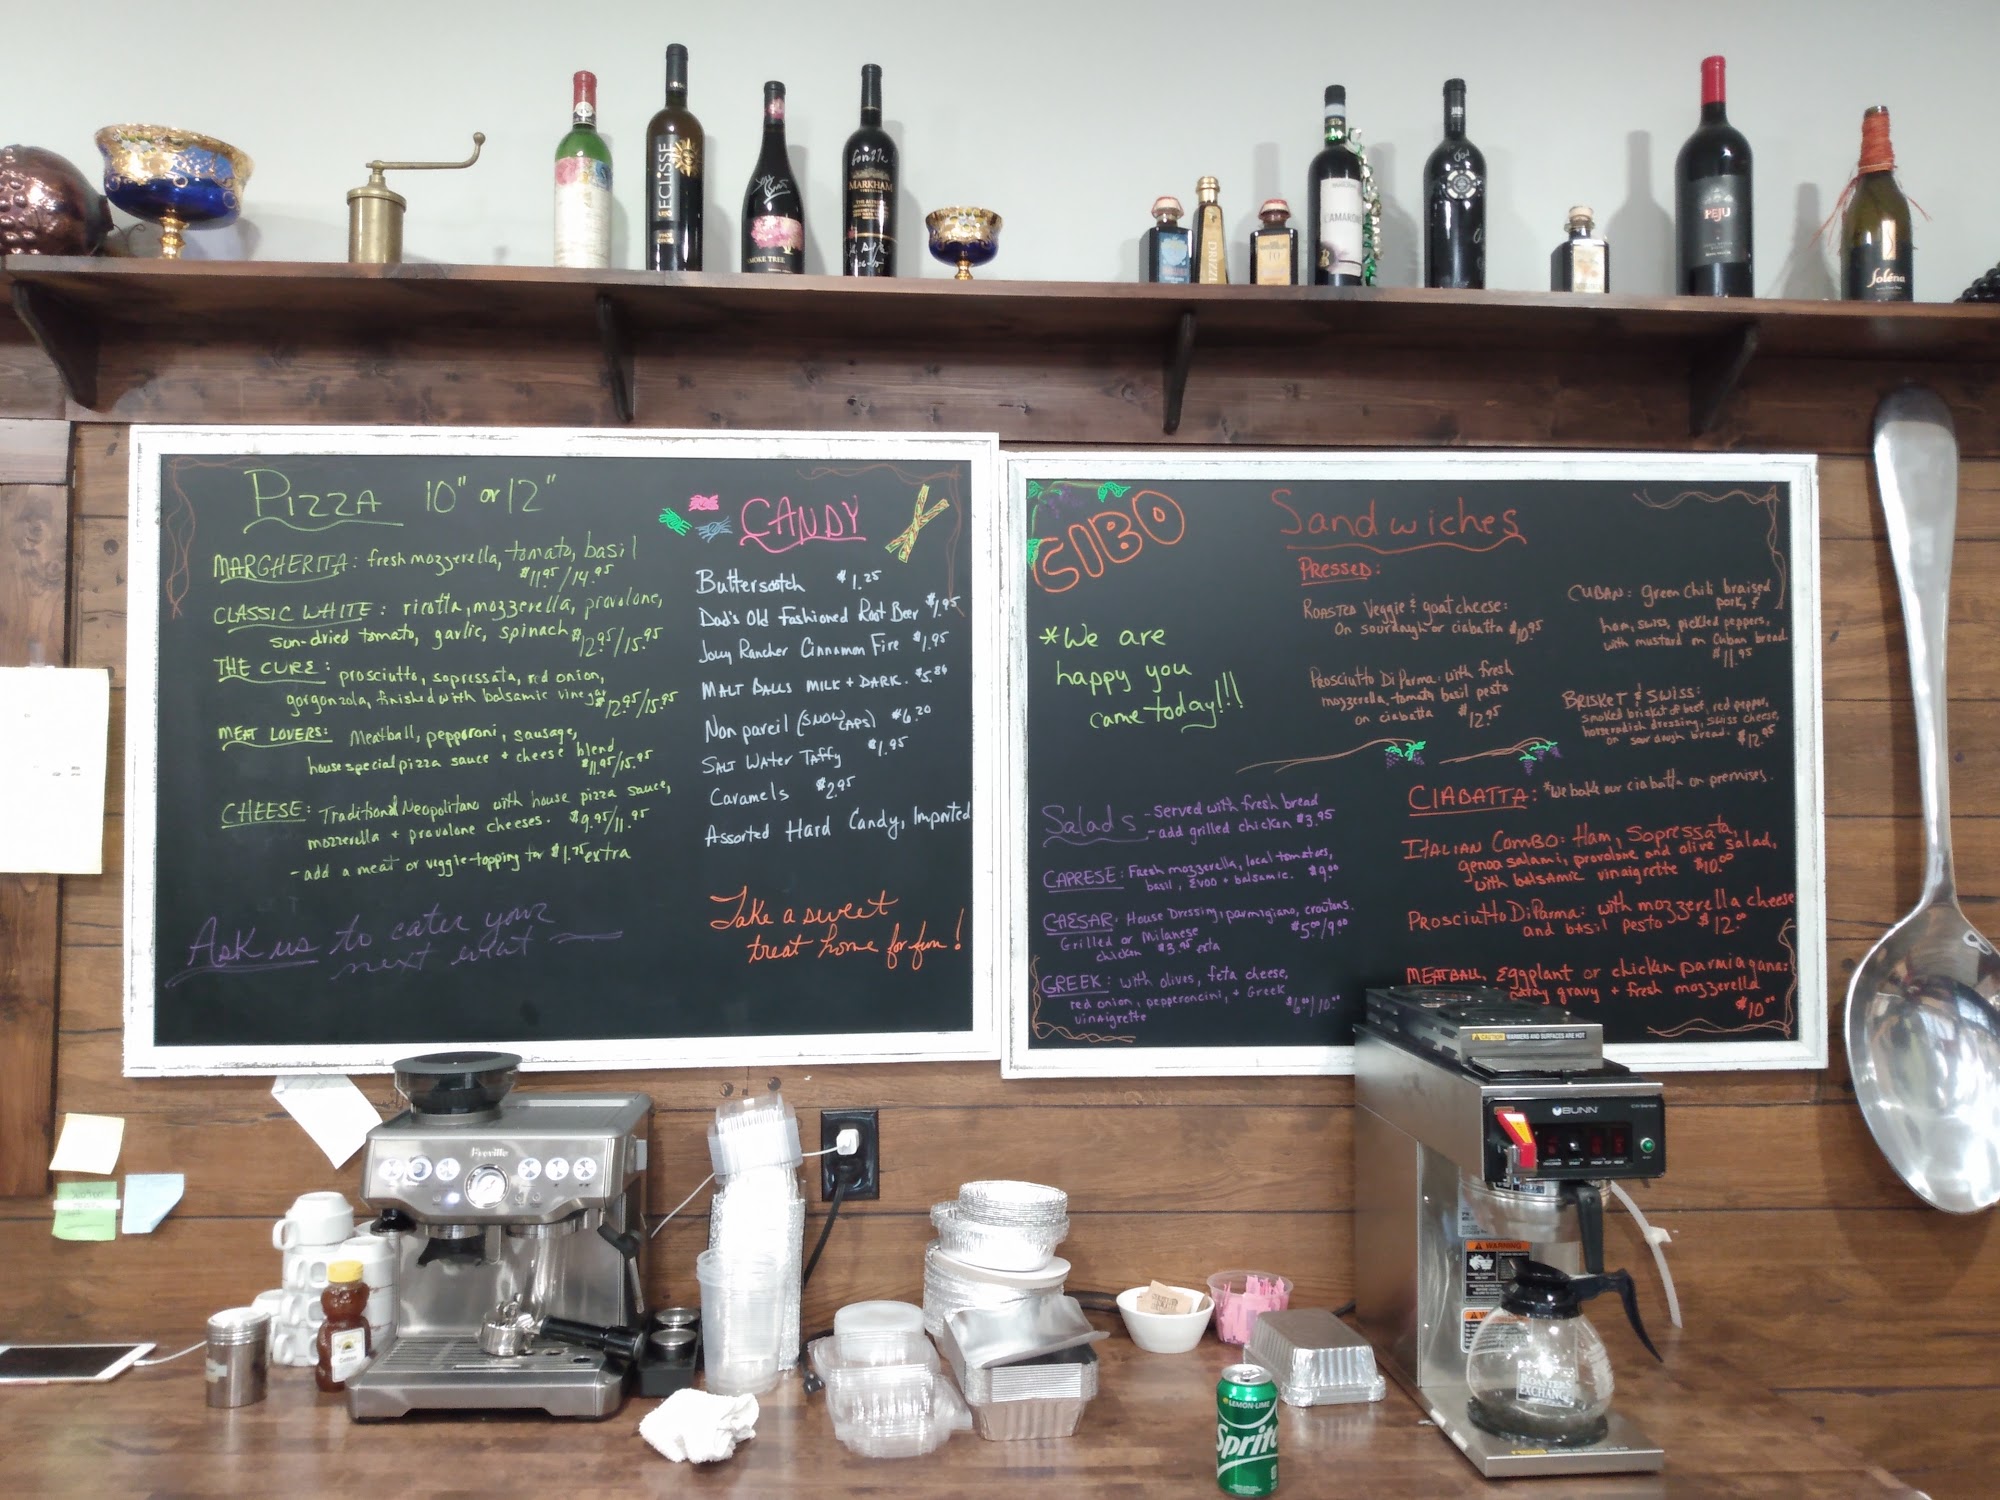 ECLISSE
MARKHAM
SMOKE TREE
DRIZZ
L'AMARONE
PEJU
Soléna
PIZZA 10" or 12"
MARGHERITA: fresh mozzerella, tomato, basil
$11.95/14.95
CLASSIC WHITE: ricotta, mozzerella, provolone,
sun-dried tomato, garlic, spinach $12.95/15.95
THE CURE: prosciutto, sopressata, red onion,
gorgonzola, finished with balsamic vinegar $12.95/15.95
MEAT LOVERS: Meatball, pepperoni, sausage,
house special pizza sauce + cheese blend
$11.95/15.95
CHEESE: Traditional Neopolitano with house pizza sauce,
mozzerella + provolone cheeses. $9.95/11.95
- add a meat or veggie-topping for $1.75 extra
Ask us to cater your
next event
CANDY
Butterscotch $1.25
Dad's Old Fashioned Root Beer $1.95
Jolly Rancher Cinnamon Fire $1.95
MALT BALLS MILK + DARK. $5.86
Non pareil (SNOW CAPS) $6.20
SALT WATER TAFFY $1.95
Caramels $2.95
Assorted Hard Candy, Imported
Take a sweet
treat home for fun!
CIBO
*We are
happy you
came today!!!
Sandwiches
PRESSED:
ROASTED Veggie & goat cheese:
On sourdough or ciabatta $10.95
PROSCIUTTO DI PARMA: with fresh
mozzerella, tomato, basil pesto
on ciabatta $12.95
CUBAN: green chili braised
pork, &
ham, swiss, pickled peppers,
with mustard on Cuban bread
$11.95
BRISKET & SWISS:
smoked brisket of beef, red pepper,
horseradish dressing, swiss cheese,
on sour dough bread. $12.95
Salads - Served with fresh bread
- add grilled chicken $3.95
CAPRESE: Fresh mozzerella, local tomatoes,
basil, EVOO + balsamic. $9.00
CAESAR: House Dressing, parmigiano, croutons.
$5.00/9.00
Grilled or Milanese
chicken $3.95 exta
GREEK: with olives, feta cheese,
red onion, pepperoncini, + Greek
vinaigrette $6.00/10.00
CIABATTA: *We bake our ciabatta on premises.
ITALIAN COMBO: Ham, Sopressata,
genoa salami, provolone and olive salad,
with balsamic vinaigrette $10.00
PROSCIUTTO DI PARMA: with mozzerella cheese
and basil pesto $12.00
MEATBALL, Eggplant or chicken parmiagana:
gravy + fresh mozzerella
$10.00
CAUTION WARMERS AND SURFACES ARE HOT
BUNN
Breville
WARNING
ROASTERS
EXCHANGE
LEMON-LIME
Sprite